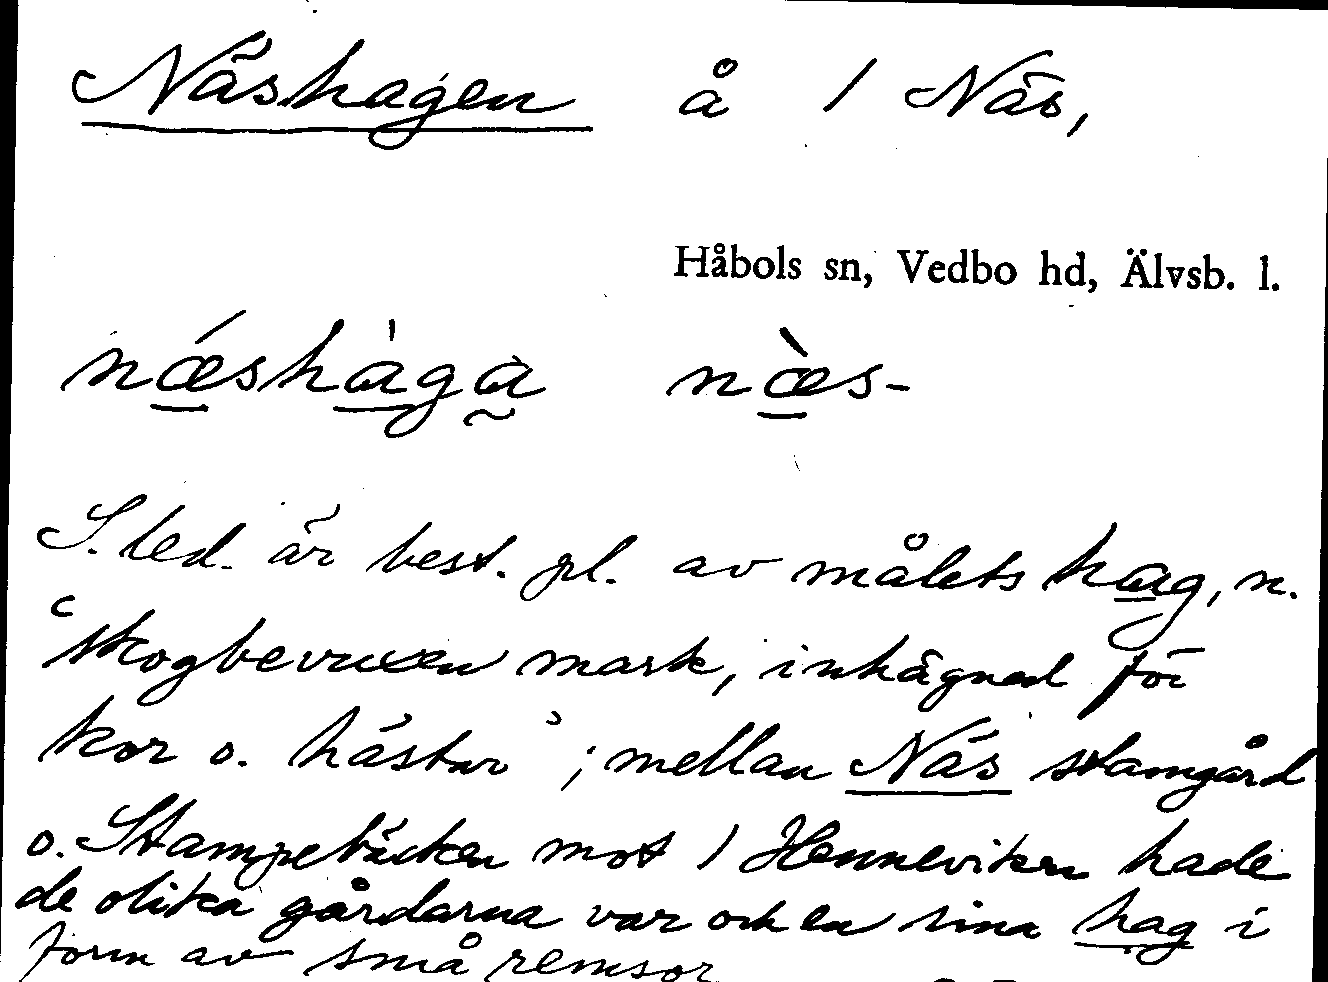 Näshagen å 1 Näs,
Håbols sn, Vedbo hd, Älvsb. l.
næ´shàga næ`s-
S. led. är best. pl. av målets hag, n.
"skogbevuxen mark, inhägnad för
kor o. hästar"; mellan Näs stamgård
o. Stampebäcken mot 1 Henneviken hade
de olika gårdarna var och en sina hag i
form av små remsor